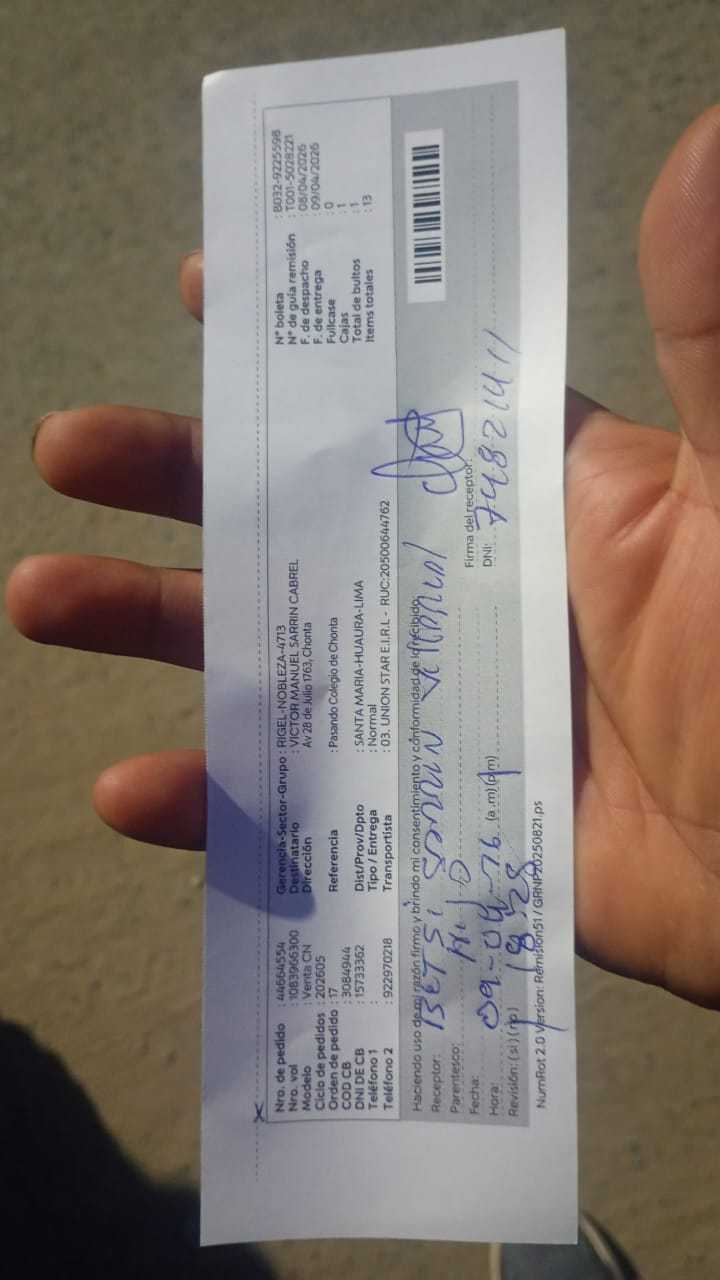 Nro. de pedido : 44664554
Nro. vol : 1083966300
Modelo : Venta CN
Ciclo de pedidos : 202605
Orden de pedido : 17
COD CB : 3084944
DNI DE CB : 15733362
Teléfono 1 :
Teléfono 2 : 922970218
Gerencia-Sector-Grupo : RIGEL-NOBLEZA-4713
Destinatario : VICTOR MANUEL SARRIN CABREL
Dirección Av 28 de Julio 1763, Chonta
Referencia : Pasando Colegio de Chonta
Dist/Prov/Dpto : SANTA MARIA-HUAURA-LIMA
Tipo / Entrega : Normal
Transportista : 03. UNION STAR E.I.R.L - RUC:20500644762
N° boleta : B032-9225598
N° de guía remisión : T001-5028221
F. de despacho : 08/04/2026
F. de entrega : 09/04/2026
Fullcase : 0
Cajas : 1
Total de bultos : 1
Items totales : 13
Haciendo uso de mi razón firmo y brindo mi consentimiento y conformidad de lo recibido,
Receptor: BETSI SARRIN
Parentesco:
Fecha: 09-04-26
Hora: 18:28 (a.m)(p.m)
Revisión: (si) (no)
Firma del receptor:
DNI: 74821411
NumRot 2.0 Version: Remision51 / GRNP20250821.ps